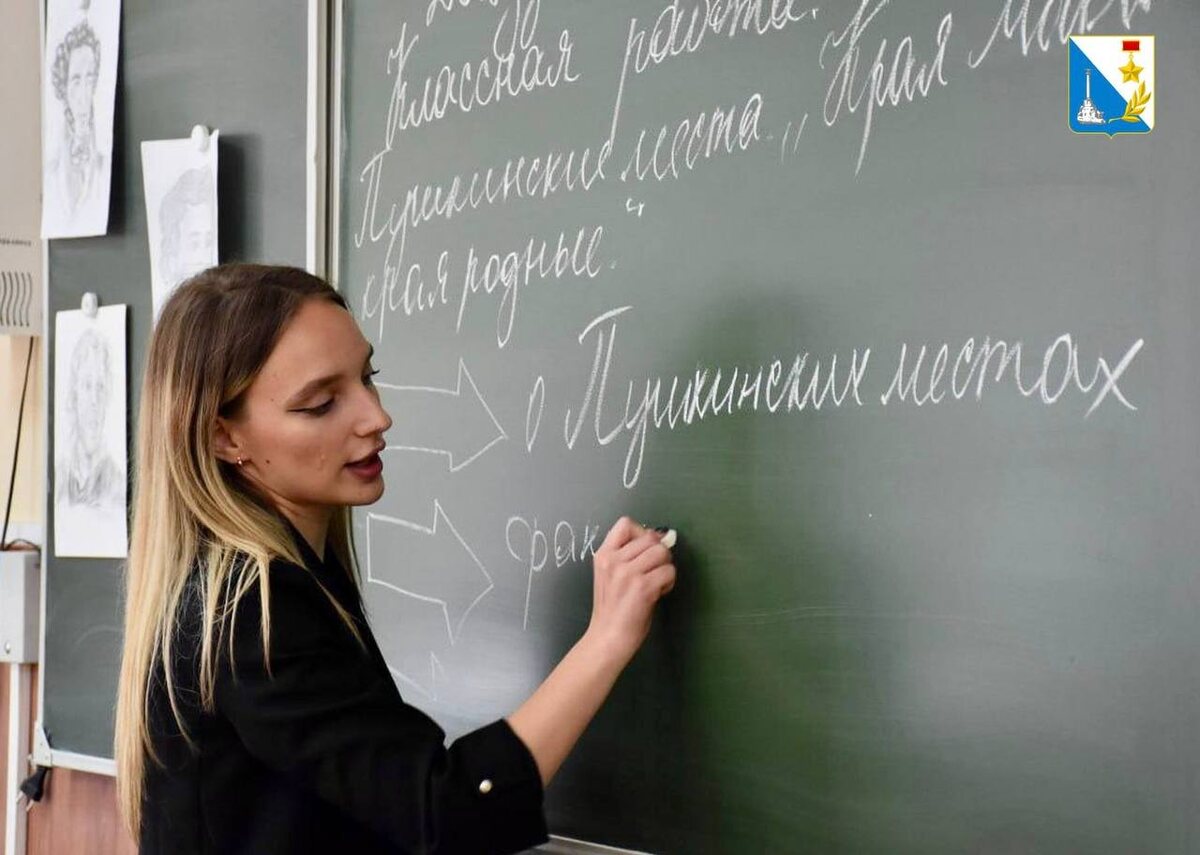 Классная работа.
Пушкинские места. „Края мои,
края родные“.
о Пушкинских местах
фак